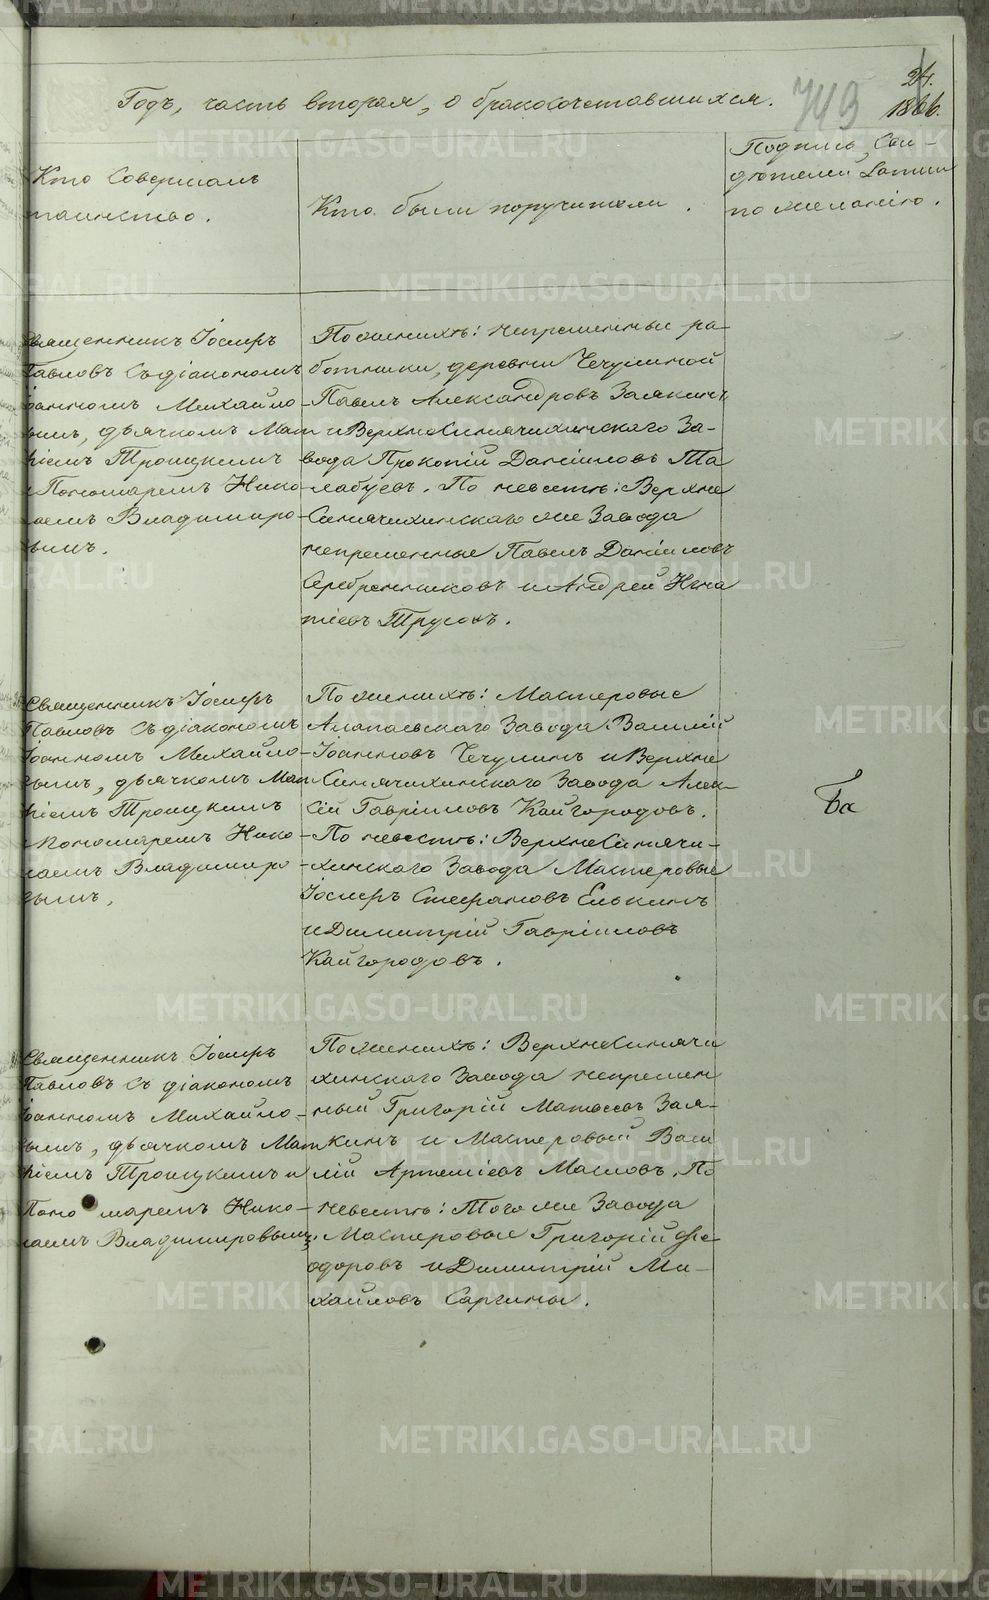 24.
Годъ, часть вторая, о бракосочетавшихся.
749
1866.
Кто совершалъ
таинство.
Кто были поручители.
Подпись Сви-
дѣтелей записи
по желанію.
Священникъ Іосифъ
Павловъ съ діакономъ
Іоанномъ Михайло-
вымъ, дьячкомъ Мат
ѳіемъ Троицкимъ
и Пономаремъ Нико-
лаемъ Владимиро-
вымъ.
По женихѣ: непременные ра-
ботники, деревни Чечулиной
Павелъ Александровъ Заякинъ
и ВерхнеСинячихинскаго За-
вода Прокопій Даніиловъ Та
лабуевъ. По невестѣ: Верхне
Синячихинскаго же Завода
непременные Павелъ Даніиловъ
Серебренниковъ и Андрей Игна
тіевъ Трусовъ.
Священникъ Іосифъ
Павловъ съ діакономъ
Іоанномъ Михайло-
вымъ, дьячкомъ Мат
ѳіемъ Троицкимъ
и Пономаремъ Нико-
лаемъ Владимиро
вымъ,
По женихѣ: Мастеровые
Алапаевскаго Завода Василій
Іоанновъ Чечулинъ и Верхне
Синячихинскаго Завода Алек-
сій Гавріиловъ Кайгородовъ.
По невестѣ: ВерхнеСинячи-
хинскаго Завода Мастеровые
Іосифъ Стефановъ Елькинъ
и Димитрій Гавріиловъ
Кайгородовъ.
Священникъ Іосифъ
Павловъ съ діакономъ
Іоанномъ Михайло-
вымъ, дьячкомъ Мат
ѳіемъ Троицкимъ и
Поно маремъ Нико-
лаемъ Владимировымъ.
По женихѣ: ВерхнеСинячи
хинскаго Завода непремен
ный Григорій Матѳеевъ Зая-
кинъ и Мастеровый Васи
лій Артеміевъ Масловъ. По
невестѣ: Того же Завода
Мастеровые Григорій Ѳе-
одоровъ и Димитрій Ми-
хайловъ Саргины.
METRIKI.GASO-URAL.RU